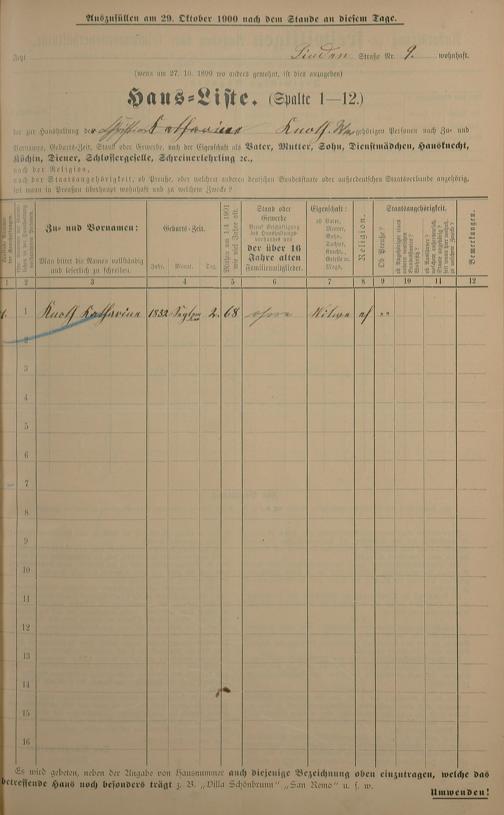 Auszufüllen am 29. Oktober 1900 nach dem Stande an diesem Tage.
Jetzt Linden Straße Nr. 9. wohnhaft.
(wenn am 27. 10. 1899 wo anders gewohnt, ist dies anzugeben)
Haus-Liste. (Spalte 1—12.)
der zur Haushaltung der Katharina Knoll gehörigen Personen nach Zu- und
Vornamen, Geburts-Zeit, Stand oder Gewerbe, nach der Eigenschaft als Vater, Mutter, Sohn, Dienstmädchen, Hausknecht,
Köchin, Diener, Schlossergeselle, Schreinerlehrling ꝛc.,
nach der Religion,
nach der Staatsangehörigkeit, ob Preuße, oder welchem anderen deutschen Bundesstaate oder außerdeutschen Staatsverbande angehörig,
seit wann in Preußen überhaupt wohnhaft und zu welchem Zwecke?
Zu- und Vornamen:
Man bittet die Namen vollständig
und leserlich zu schreiben.
Geburts-Zeit.
Jahr. Monat. Tag.
Stand oder
Gewerbe
der über 16
Jahre alten
Familienmitglieder.
Eigenschaft:
ob Vater,
Mutter,
Sohn,
Tochter,
Knecht,
Geselle u.
Magd.
Religion.
Ob Preuße?
Staatsangehörigkeit.
Bemerkungen.
1 2 3 4 5 6 7 8 9 10 11 12
1 Knoll Katharina 1832 2. 68 ohne Witwe ef "
2
3
4
5
6
7
8
9
10
11
12
13
14
15
16
Es wird gebeten, neben der Angabe von Hausnummer auch diejenige Bezeichnung oben einzutragen, welche das
betreffende Haus noch besonders trägt z. B. „Villa Schönbrunn" „San Remo" u. s. w.
Umwenden!